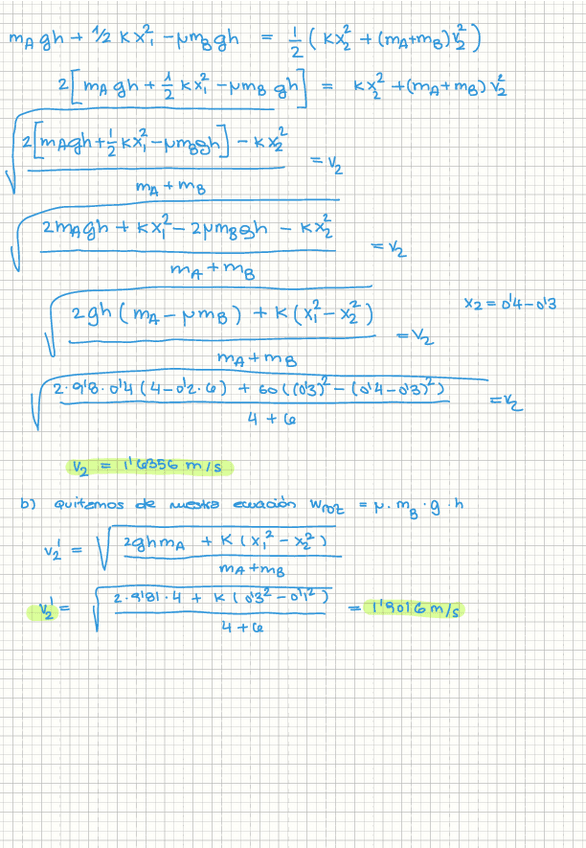 m_A gh + 1/2 K x₁² - μm_B gh = 1/2 ( Kx₂² + (m_A+m_B) v₂² )
2[ m_A gh + 1/2 Kx₁² - μm_B gh ] = Kx₂² + (m_A+m_B) v₂²
√( (2[m_A gh + 1/2 Kx₁² - μm_B gh] - Kx₂²) / (m_A + m_B) ) = v₂
√( (2m_A gh + Kx₁² - 2μm_B gh - Kx₂²) / (m_A + m_B) ) = v₂
√( (2gh (m_A - μm_B) + K(x₁² - x₂²)) / (m_A + m_B) ) = v₂ x₂ = 0'4 - 0'3
√( (2·9'8·0'4 (4 - 0'2·6) + 60 ((0'3)² - (0'4-0'3)²)) / (4 + 6) ) = v₂
v₂ = 1'6356 m/s
b) Quitamos de nuestra ecuación W_roz = μ·m_B·g·h
v₂' = √( (2ghm_A + K(x₁² - x₂²)) / (m_A + m_B) )
v₂' = √( (2·9'81·4 + K(0'3² - 0'1²)) / (4 + 6) ) = 1'9016 m/s